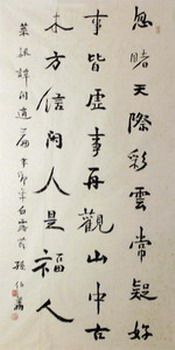 忽睹天際彩雲常疑好
事皆虛事再觀山中古
木方信閑人是福人
菜根譚閑適篇 辛卯年白露 孫伯翔